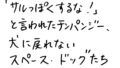 「サルっぽくするな!」
と言われたチンパンジー、
犬に戻れない
スペース・ドッグたち